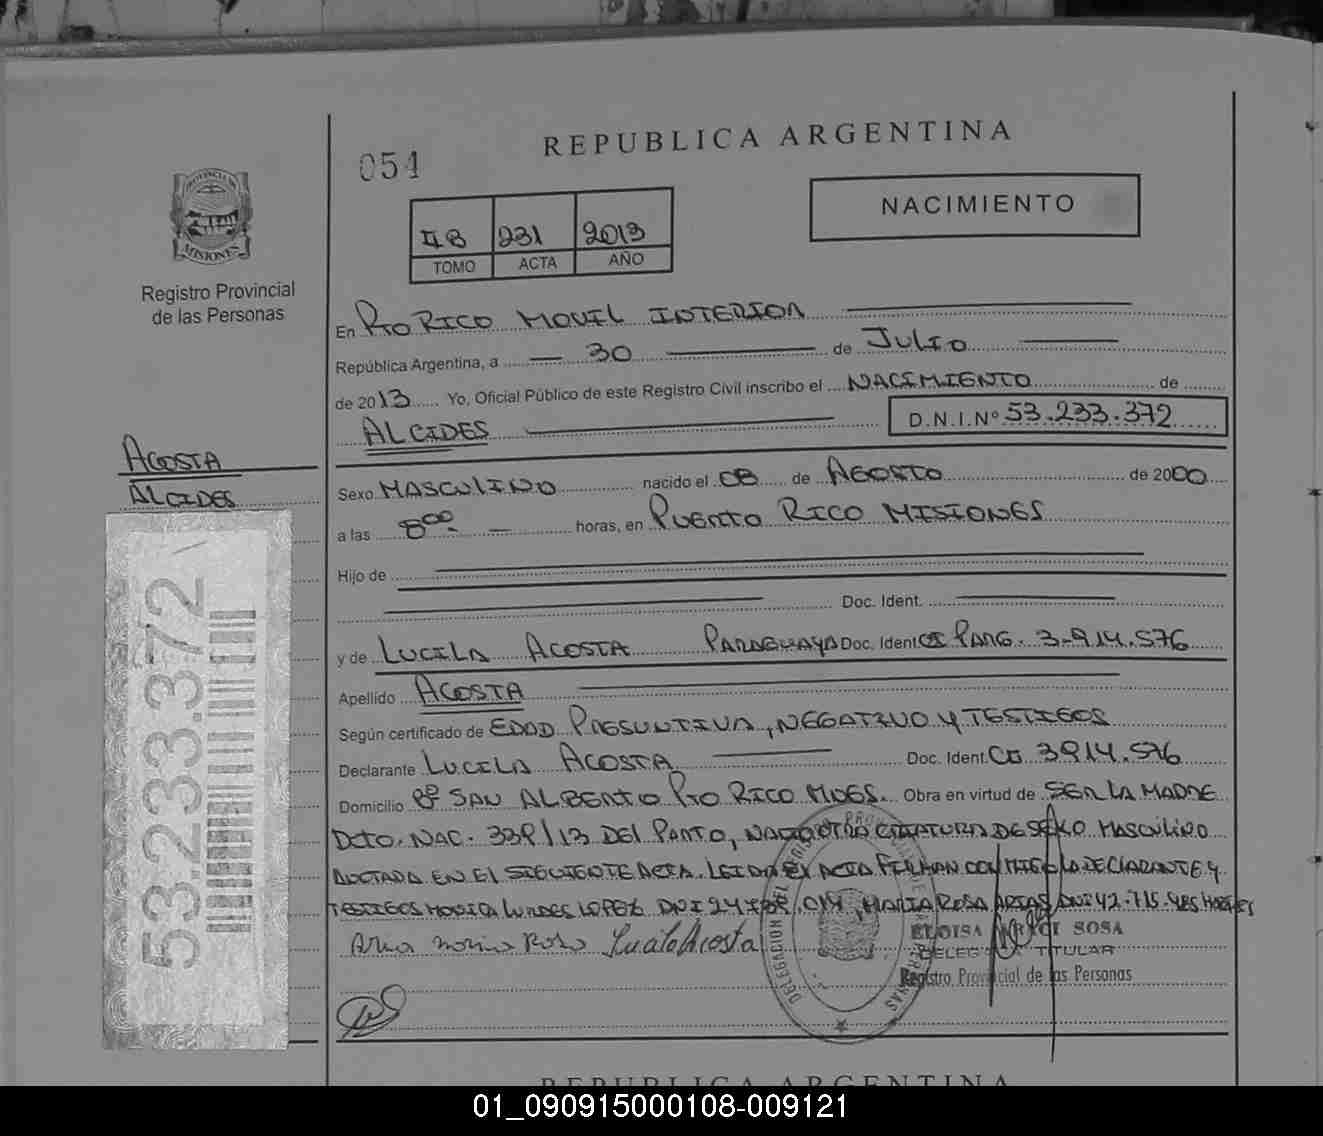 REPUBLICA ARGENTINA
054
NACIMIENTO
II B 231 2013
TOMO ACTA AÑO
PROVINCIA DE
MISIONES
Registro Provincial
de las Personas
En Pto RICO MOVIL INTERIOR
República Argentina, a 30 de JULIO
de 2013 Yo, Oficial Público de este Registro Civil inscribo el NACIMIENTO de
ALCIDES D.N.I.Nº 53.233.372
ACOSTA
ALCIDES
Sexo MASCULINO nacido el 08 de AGOSTO de 2000
a las 8 00 horas, en PUERTO RICO MISIONES
Hijo de
Doc. Ident.
y de LUCILA ACOSTA PARAGUAYA Doc. Ident. CI PARG. 3.914.576
Apellido ACOSTA
Según certificado de EDAD PRESUNTIVA, NEGATIVO Y TESTIGOS
Declarante LUCILA ACOSTA Doc. Ident. CI 3.914.576
Domicilio Bº SAN ALBERTO Pto RICO MNES. Obra en virtud de SER LA MADRE
DCTO. NAC. 339/13 DEL PARTO, NACIO OTRA CRIATURA DE SEXO MASCULINO
ANOTADA EN EL SIGUIENTE ACTA. LEIDA EL ACTA FIRMAN CONMIGO LA DECLARANTE Y
TESTIGOS LURDES LOPEZ DNI MARIA ROSA ARIAS DNI 42.715.
Lucila Acosta
ELOISA SOSA
TITULAR
Registro Provincial de las Personas
53.233.372
REPUBLICA ARGENTINA
01_090915000108-009121